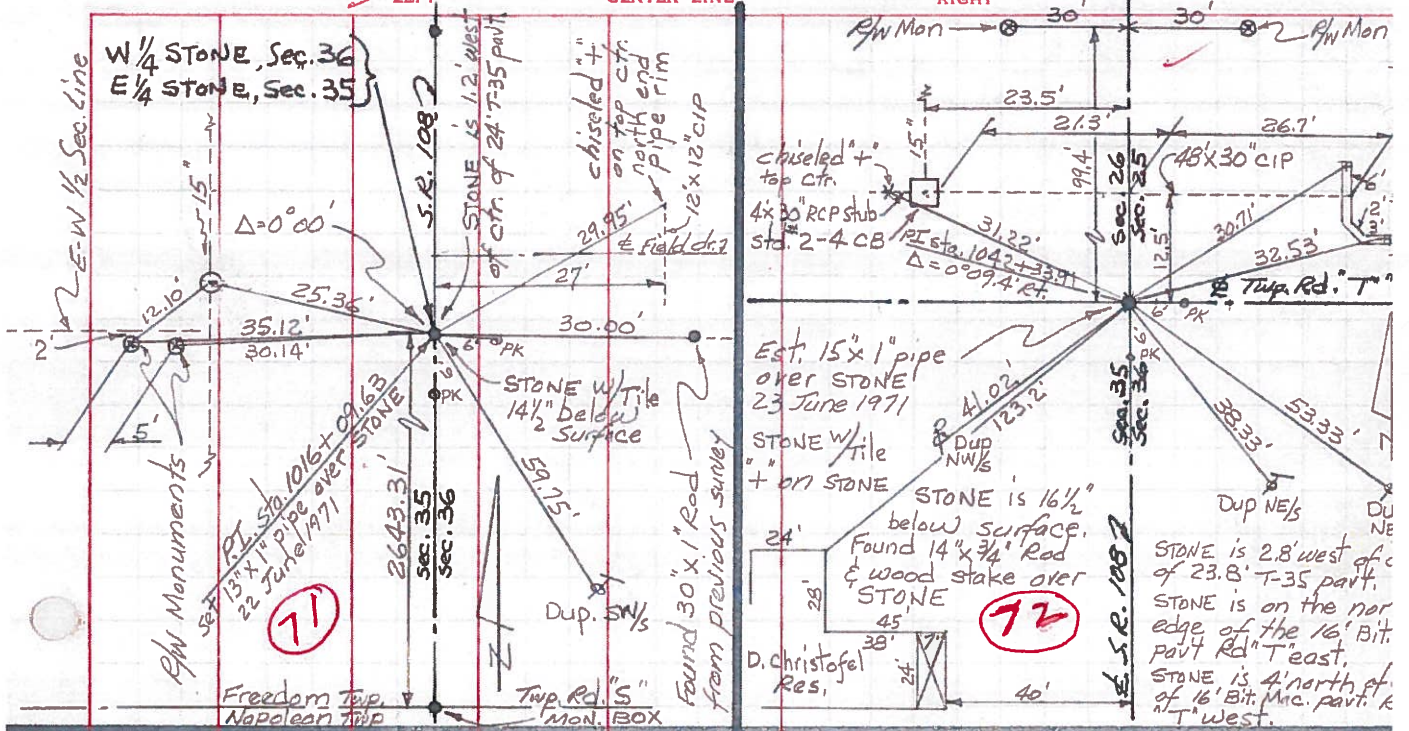 CENTER LINE
RIGHT
W 1/4 STONE, Sec. 36
E 1/4 STONE, Sec. 35
E-W 1/2 Sec. Line
15"
Δ=0°00'
S.R. 108
STONE is 1.2' West
of ctr. of 24' T-35 pavt.
chiseled "+"
on top ctr.
north end
pipe rim
12'x12" CIP
29.95'
℄ Field dr.
27'
12.10'
25.36'
35.12'
30.14'
2'
30.00'
6'
PK
6'
PK
STONE W/Tile
14 1/2" Below
Surface
5'
R/W Monuments
P.I. Sta. 1016 x 09.63
Set 13"x1" pipe over STONE
22 June 1971
2643.31'
Sec. 35
Sec. 36
59.75'
Dup. SW/s
Found 30"x1" Rod
from previous survey
71
Freedom Twp.
Napoleon Twp
Twp. Rd. "S"
MON. BOX
30'
30'
R/W Mon
R/W Mon
23.5'
21.3'
26.7'
15"
chiseled "+"
top ctr.
4'x30" RCP stub
std. 2-4 CB
99.4
Sec. 26
Sec. 25
48'x30" CIP
6'
2'
31.22'
PI sta. 1042+33.91
Δ=0°09.4' Rt.
12.5'
30.71'
32.53'
℄ Twp. Rd. "T"
6'
PK
6'
PK
Est. 15"x1" pipe
over STONE
23 June 1971
STONE W/Tile
"+" on STONE
41.02'
123.2'
Dup
NW/s
Sec. 35
Sec. 36
38.33'
53.33'
Dup NE/s
STONE is 16 1/2"
below surface.
Found 14"x3/4" Rod
& wood stake over
STONE
24'
28'
45
38'
7'
24'
D. Christofel
Res.
40'
72
℄ S.R. 108
STONE is 2.8' west of
of 23.8' T-35 pavt.
STONE is on the nor
edge of the 16' Bit.
pavt Rd "T" east.
STONE is 4' north of
of 16' Bit. Mac. pavt.
"T" west.